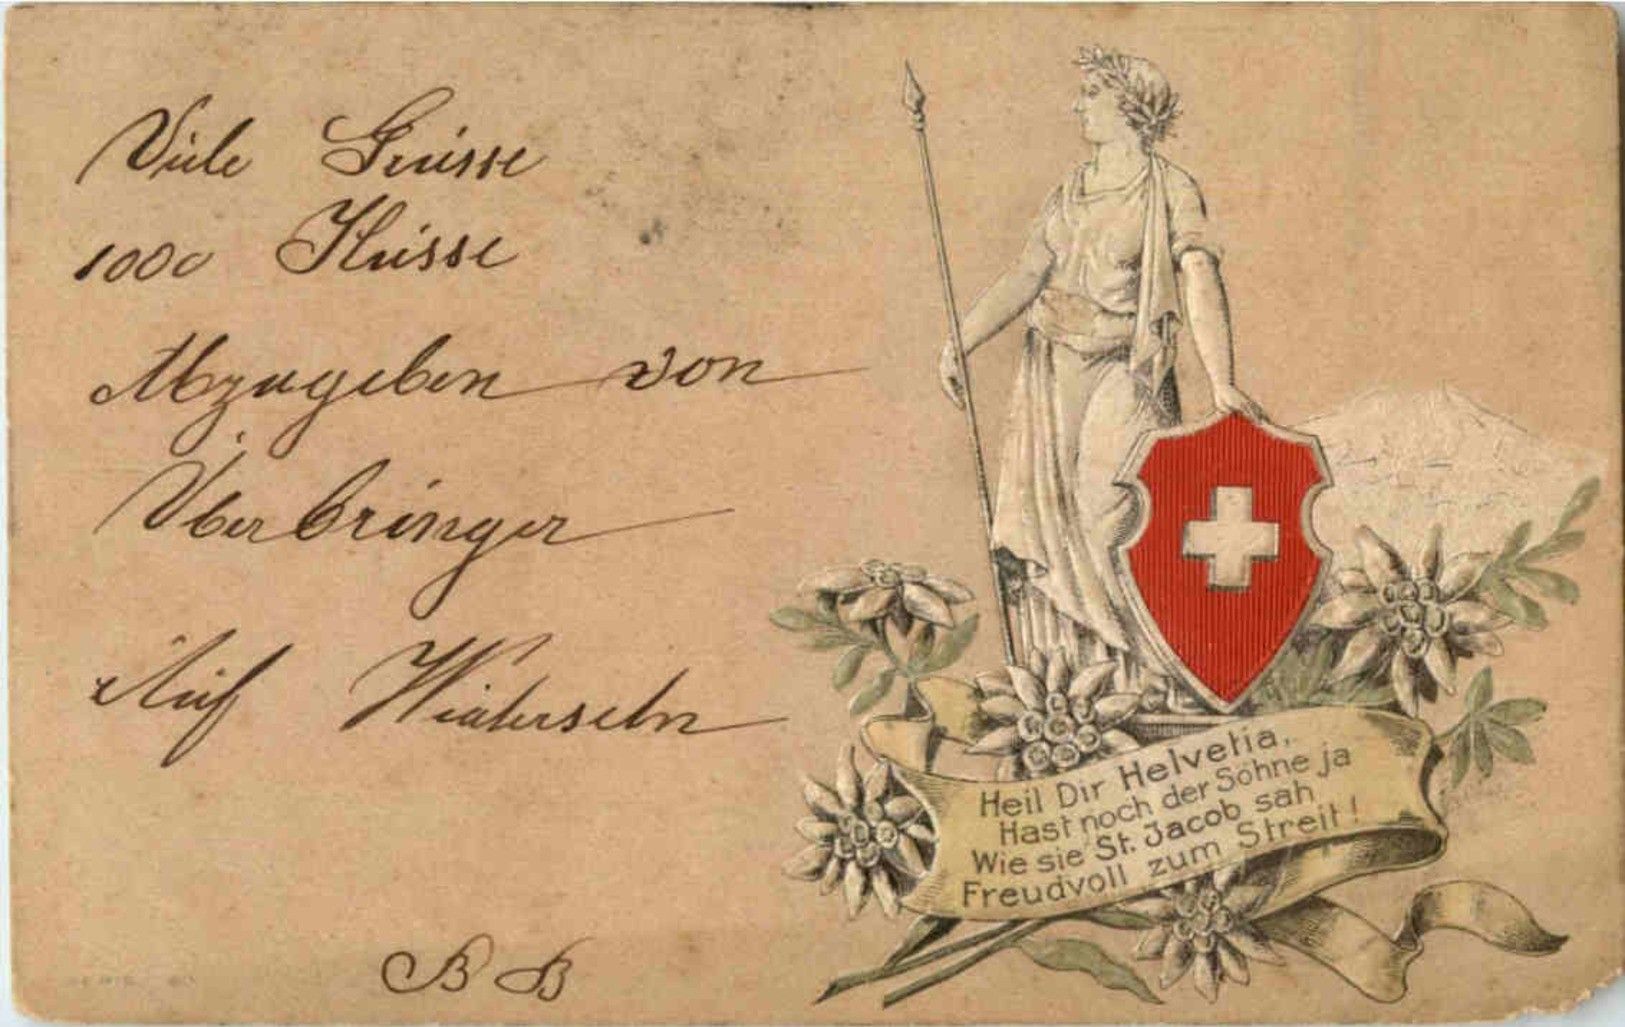 Viele Grüsse
1000 Küsse
Abzugeben von
Überbringer
Auf Wiedersehn
B B
Heil Dir Helvetia,
Hast noch der Söhne ja
Wie sie St. Jacob sah
Freudvoll zum Streit!